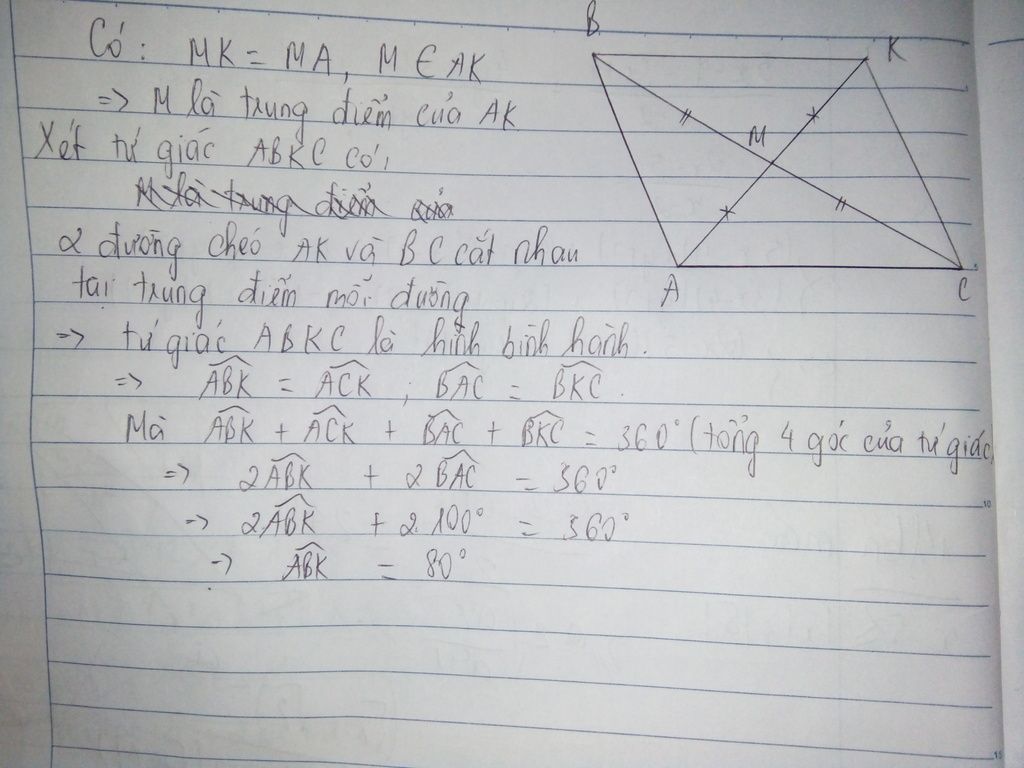 Có: MK = MA, M ∈ AK
=> M là trung điểm của AK
Xét tứ giác ABKC có,
M là trung điểm của
2 đường chéo AK và BC cắt nhau
tại trung điểm mỗi đường
=> tứ giác ABKC là hình bình hành.
=> \widehat{ABK} = \widehat{ACK} ; \widehat{BAC} = \widehat{BKC}.
Mà \widehat{ABK} + \widehat{ACK} + \widehat{BAC} + \widehat{BKC} = 360° (tổng 4 góc của tứ giác)
=> 2\widehat{ABK} + 2\widehat{BAC} = 360°
=> 2\widehat{ABK} + 2.100° = 360°
=> \widehat{ABK} = 80°
B
K
M
A
C
10
15